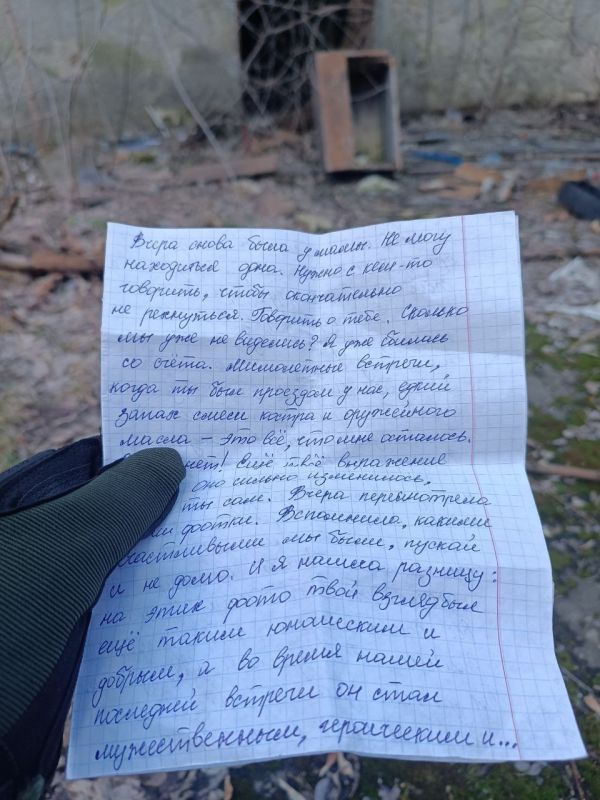 Вчера снова была у мамы. Не могу
находиться дома. Нужно с кем-то
говорить, чтобы окончательно
не рехнуться. Говорить о тебе. Сколько
мы уже не виделись? Я уже сбилась
со счёта. Мимолетные встречи,
когда ты был проездом у нас, едкий
запах смеси костра и оружейного
масла – это всё, что мне осталось.
нет! Ещё твоё выражение
оно сильно изменилось,
ты сам. Вчера пересмотрела
фотки. Вспомнила, какими
счастливыми мы были, пускай
и не долго. И я нашла разницу:
на этих фото твой взгляд был
ещё таким юношеским и
добрым, а во время нашей
последней встречи он стал
мужественным, героическим и...